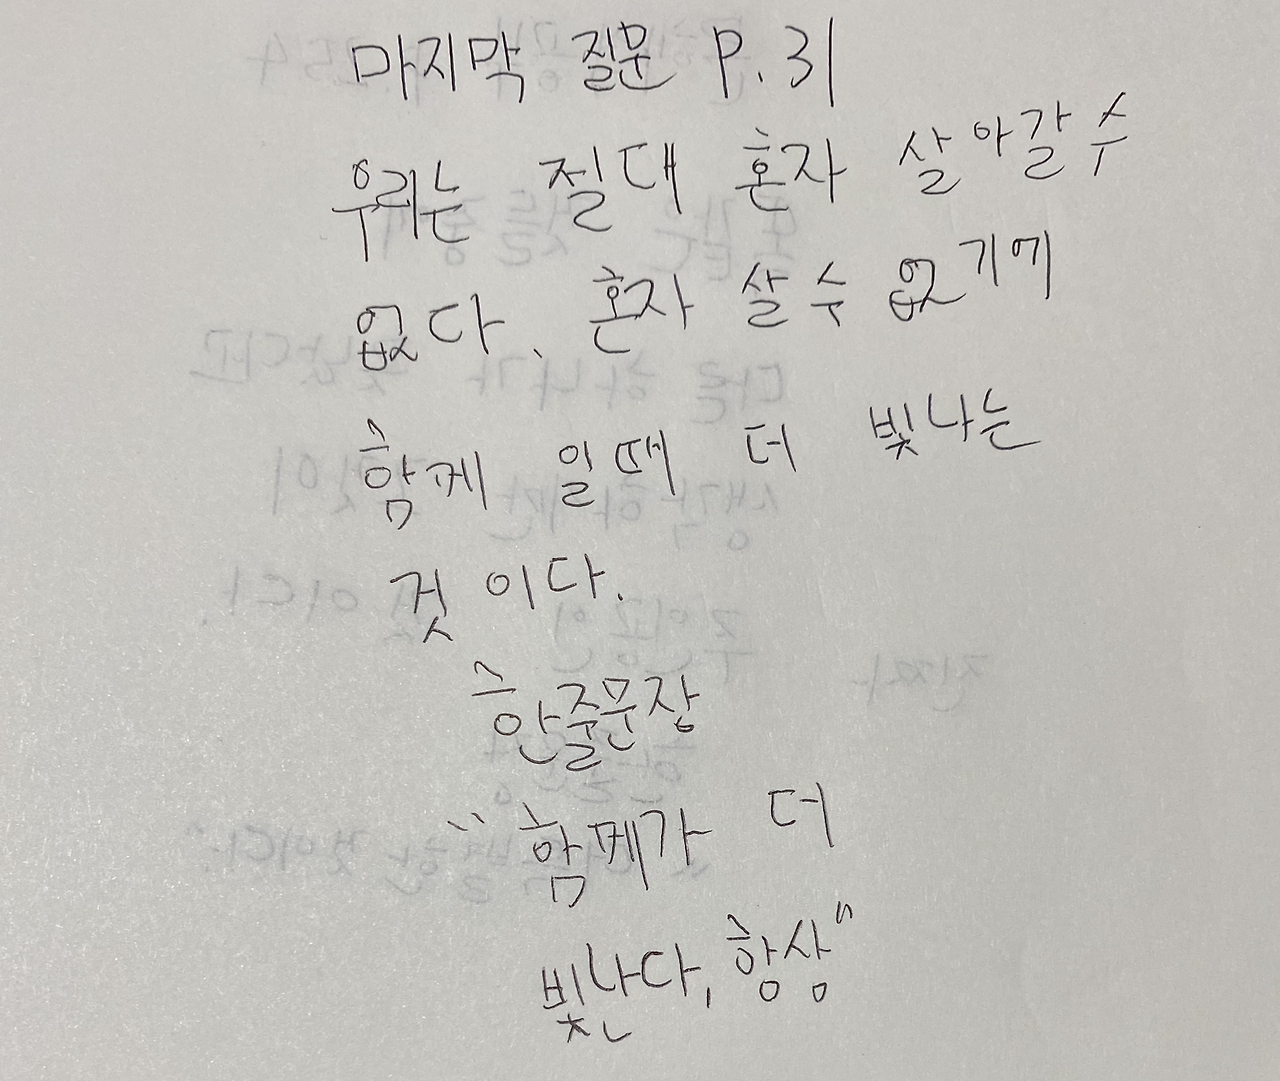 마지막 질문 P.31
우리는 절대 혼자 살아갈 수
없다. 혼자 살 수 없기에
함께 일때 더 빛나는
것 이다.
한줄문장
"함께가 더
빛난다, 항상"